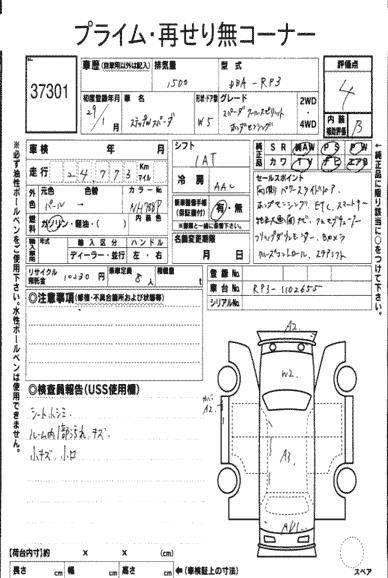 プライム・再せり無コーナー
車歴(自家用以外は記入) 排気量 型式 評価点
37301
1500 DBA-RP3 4
初度登録年月 車名 形状・ドア数 グレード 2WD 4WD
29/1 ステップWスパーダ W5 スパーダ クールスピリット
ホンダセンシング
内装補助評価 B
車検 年 月 シフト 純正品 SR AW PS PW
カワ TV ナビ エアB
走行 24773 Km マイル IAT
外色 元色 色替 カラーNo 冷房 セールスポイント
パール NH788P AAC 両側パワースライドドア
内装色 ホンダセンシング ETC スマートキー
燃料 ガソリン・軽油・( ) 新車整備手帳(保証書付) 有・無
※書類と一緒に保管下さい。
輸入車用 輸入区分 ハンドル
ディーラー・並行 左・右 名義変更期限
月 日
クルーズコントロール
リサイクル預託金 10230円 乗車定員 8人 積載量 t
登録No.
車台No. RP3-1102655
シリアルNo.
◎注意事項(修復・不具合箇所および状態等)
※必ず油性ボールペンをご使用下さい。水性ボールペンは使用できません。
←純正品に限り該当に○をつけて下さい。
A2
W2
カバー A2
A3
◎検査員報告(USS使用欄)
シートシミ
ルーム内一部汚れ キズ
小キズ 小凹
【荷台内寸】約 × × (cm)
長さ cm 幅 cm 高さ cm ←(車検証上の寸法)
スペア